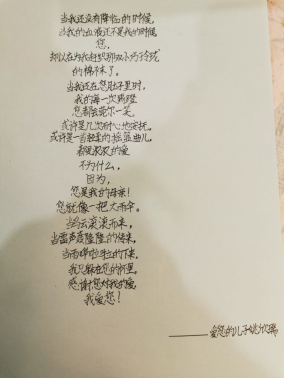 当我还没有降临的时候,
当我的血液还不是我的时候
您,
却以在为我赶织那双小巧玲珑
的棉袜了。
当我还在您肚子里时,
我的每一次蹬
您都会莞尔一笑
或许是几次耐心地安抚,
或许是一首轻柔的摇篮曲儿,
都是滚滚的爱
不为什么,
因为,
您是我的母亲!
您就像一把大雨伞。
当乌云滚滚而来,
当雷声轰隆隆的传来,
当雨哗啦啦的下来,
我只躲在您的怀里,
感谢您对我的爱
我爱您!
——爱您的儿子